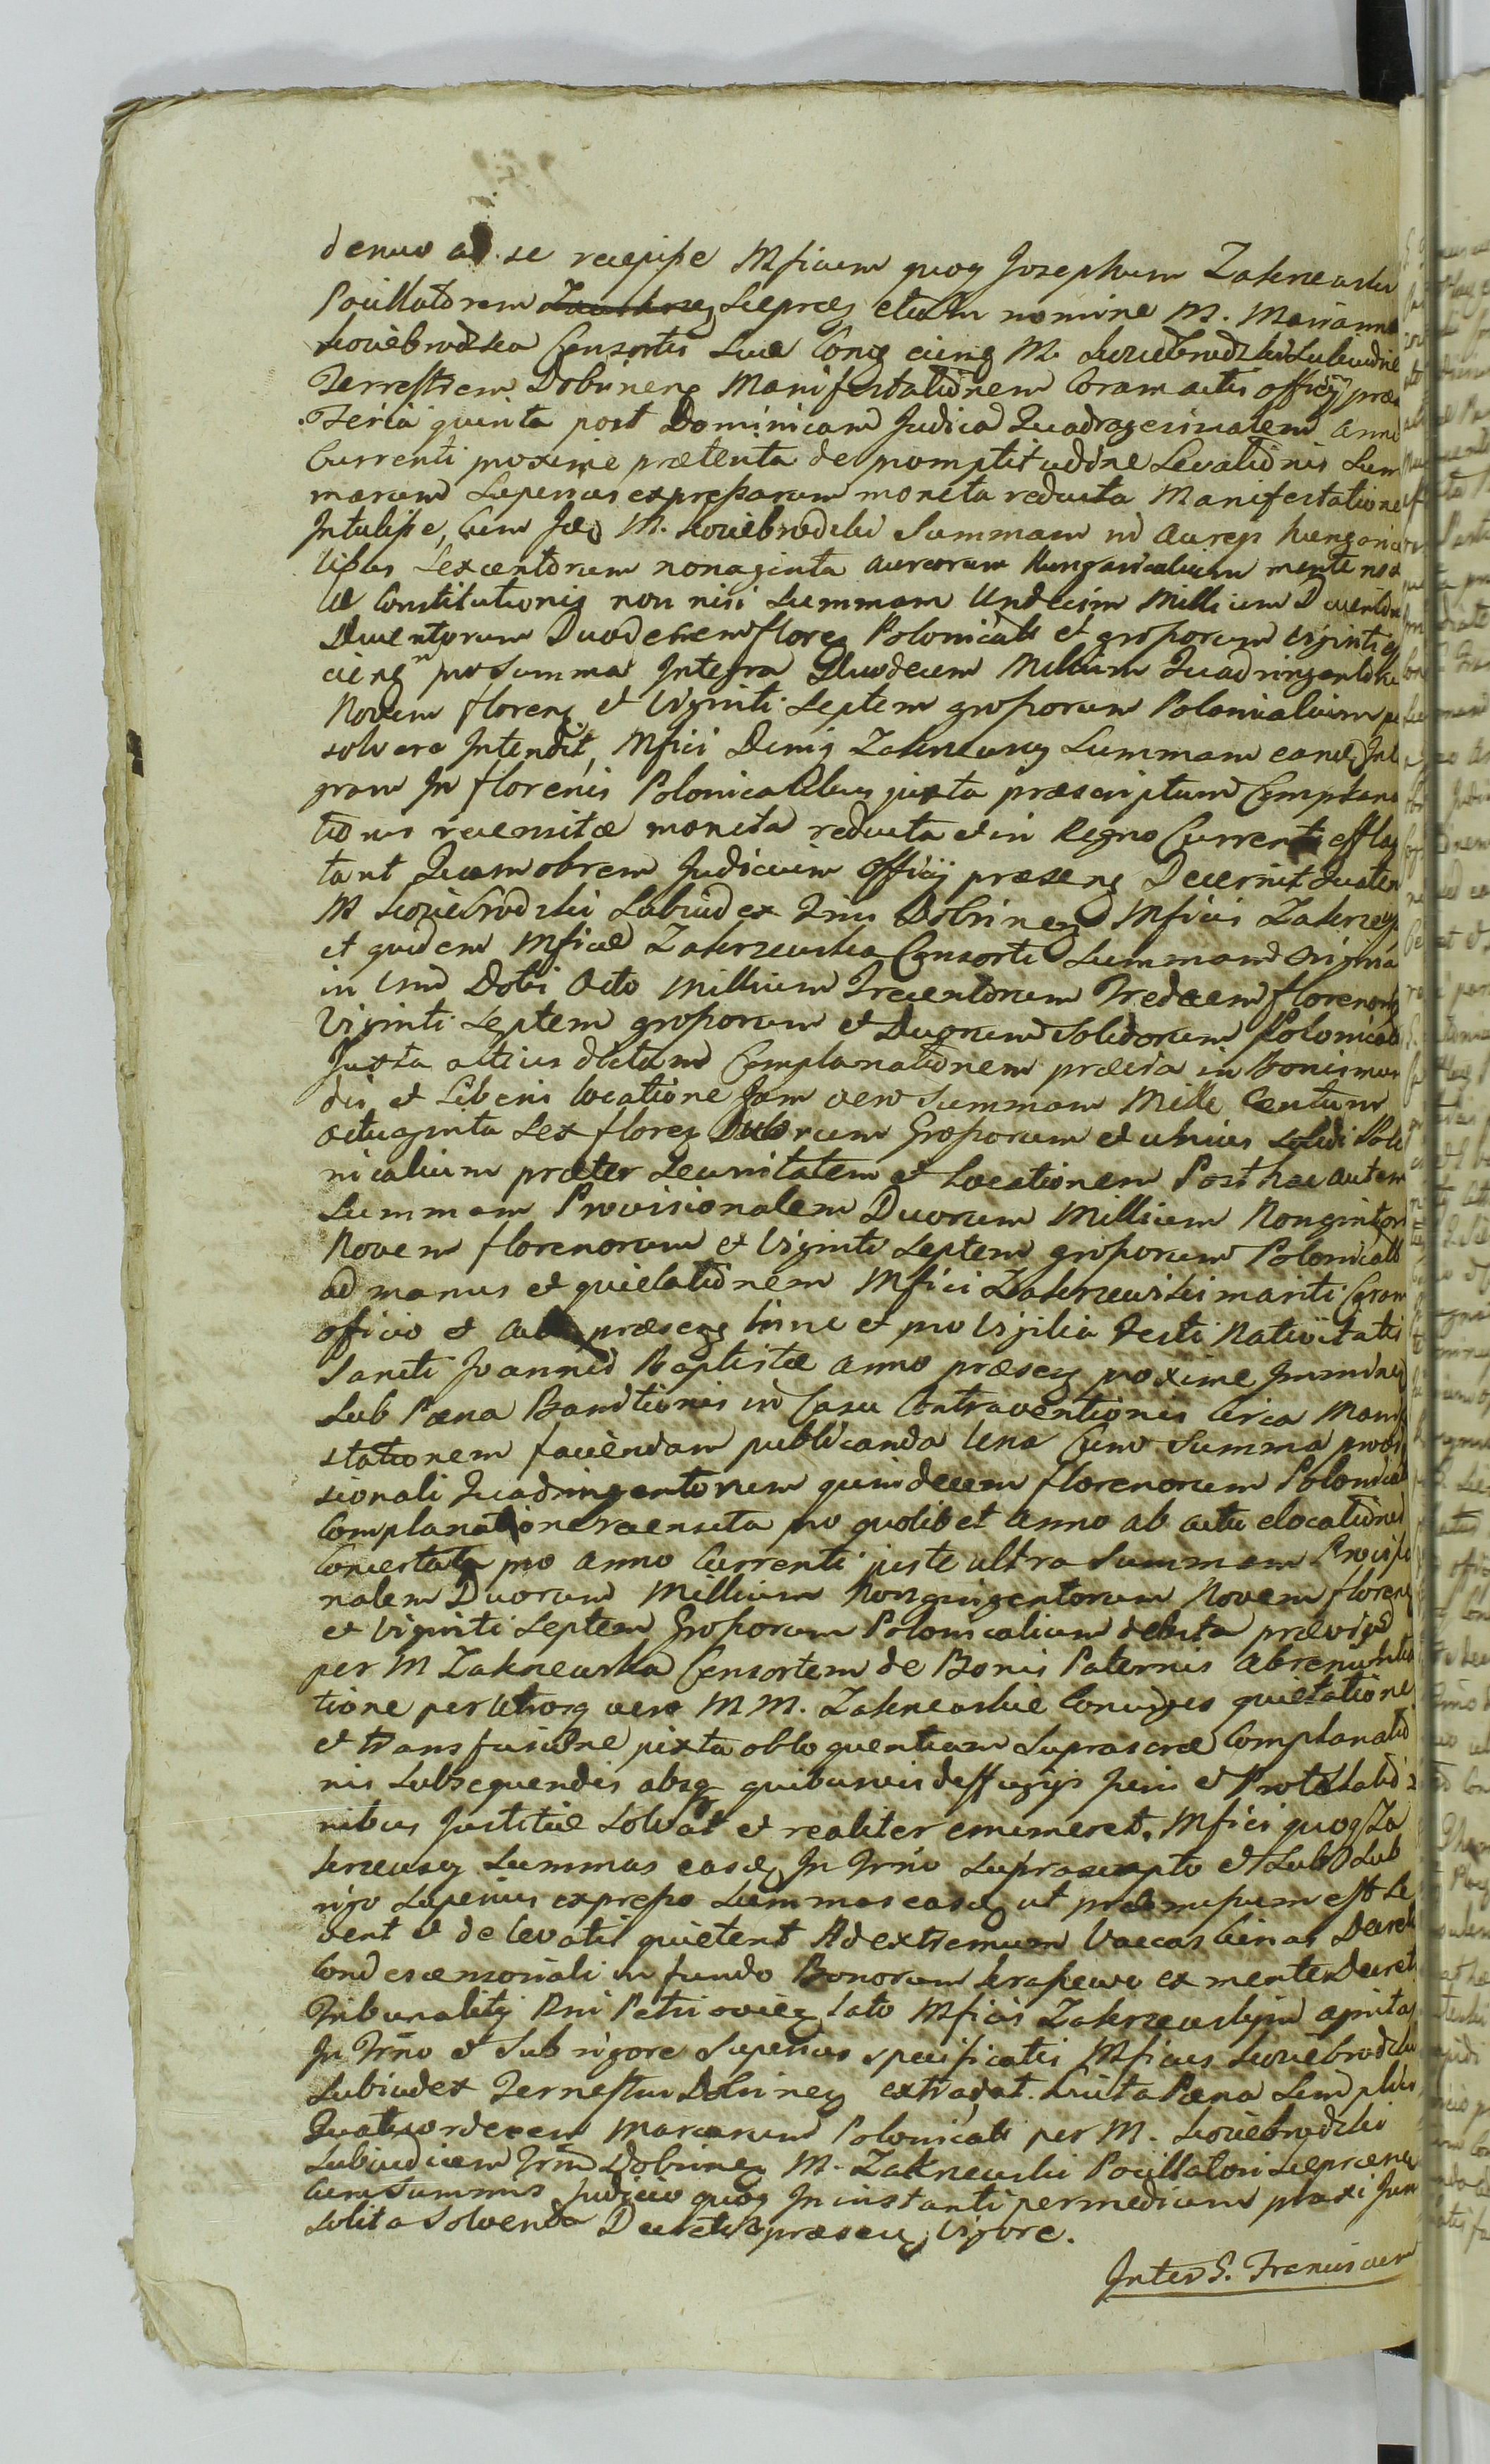 denuo ad se recepisse Mficum quoq Josephum Zakrzewski
Pocillatorem Lieprcz etiam nomine M. Marianna
Skoniebrodzka Consortis Suae Conq cieng M. Skoniebrodzki Subiudice
Terrestrem Dobrineng Manifestationem Coram actis officij præs
Feria quinta post Dominicam Judica Quadragesimalem anno
Currenti proxime prætenta de promptitudine Levationis Sum
marum Superius expressarum moneta reducta Manifestatione
Intulisse, Cum Jdeo M. Skoniebrodzki Summam in Aureis hungarica
libus Sexcentorum nonaginta aureorum Hungaricalium mente nov
ae Constitutionis non nisi Summam Undecim Millium Ducentor
Ducentorum Duodecem floreq Polonicali et grossorum viginti q
cieng pro Summa Integra Duodecem Millium Quadringentor
Novem floreng et Viginti Septem grossorum Polonicalium per
solvere Intendit, Mfici Deniq Zakrzewscy Summam eand Inte
gram In florenis Polonicalibus juxta præscriptum Complana
tionis recensitæ moneta reducta et in Regno Currenti efflag
tant Quamobrem Judicium Officij præseng Decernit Quaten
M Skoniebrodzki Subiudex Trius Dobrineng Mficis Zakrzews
et quidem Mficæ Zakrzewska Consorti Summam Origina
in Vim Dotis Octo Millium Trecentorum Tredecem florenorq
Viginti Septem grossorum et Duorum Solidorum Polonicali
Juxta altius dictam Complanationem prævia in Bonis mun
dis et Liberis locatione Jam vero Summam Mille Centum
Octuaginta Sex floreq Duorum Grossorum et unius Solidi Polo
nicalium præter Securitatem et Locationem Post hac autem
Summam Provisionalem Duorum Millium Nongintor
Novem florenorum et Viginti Septem grossorum Polonicali
ad manus et quietationem Mfici Zakrzewski mariti Coram
officio et actis præseng hinc et pro Vigilia Festi Nativitatis
Sancti Joannis Baptistæ anno præseng proxime Immineng
Sub Pæna Banitionis in Casu Contraventionis Circa Manife
stationem faciendam publicanda Una Cum Summa provi
sionali Quadringentorum quindecem florenorum Polonical
Complanatione recensita pro quolibet Anno ab actu elocationis
Concertata pro Anno Currenti juste ultra Summam Provisio
nalem Duorum Millium Nongingentorum Novem floreng
et Viginti Septem Grossorum Polonicalium debita prævia
per M Zakrzewska Consortem de Bonis Paternis abrenuntia
tione per Utrosq vero M M. Zakrzewskie Coniuges quietatione
et transfusione juxta obloquentiam Suprascræ Complanatio
nis Subsequendis absq quibusvis deffugijs Juris et Protelatio
nibus Justitiæ Solvat et realiter enumeret. Mfici quoq Za
krzewscy Summas easdq In Trmo Suprascripto et Sub Sub
rigo Superius expresso Summas easdq ut præmissum est Le
vent et de levatis quietent Ad extremum Vaccas binas Decreto
Condescensoriali in fundo Bonorum Krassewo ex mente Decreti
Tribunalitij Rni Petricovieg lato Mficis Zakrzewskim agnitas
In Trmo et Sub rigore Superius specificatis Mficus Skoniebrodzki
Subiudex Terrestris Dobrineng extradat. Luita Pæna Simplici
Quatuordecem Marcarum Polonicali per M. Skoniebrodzki
Subiudicem Trem Dobrineng M. Zakrzewski Pocillatori Lieprceng
Cum Summis Judicio quoq In instanti per medium praxi Jum
solita Solvenda Decreti præseng Vigore.
Inter S. Franciscum